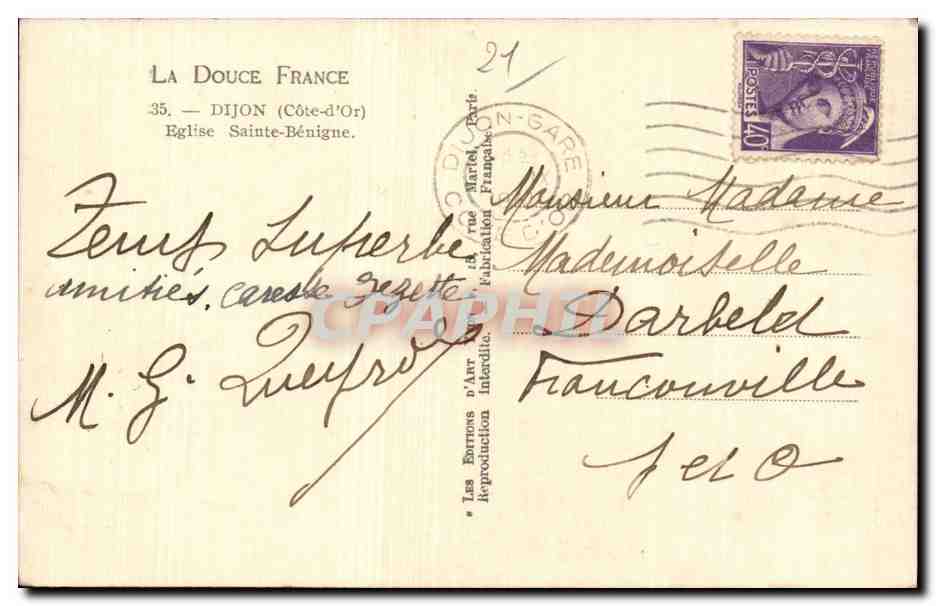 LA DOUCE FRANCE
35. — DIJON (Côte-d'Or)
Eglise Sainte-Bénigne.
21
DIJON-GARE
CÔTE D'OR
POSTES
40c
Temps Superbe
amitiés, caresse Zezette
M. G. Queyroy
" LES EDITIONS D'ART 15, rue Martel, Paris.
Reproduction interdite. Fabrication Française.
Monsieur Madame
Mademoiselle
Darbeld
Franconville
S et O
CPAPHIL